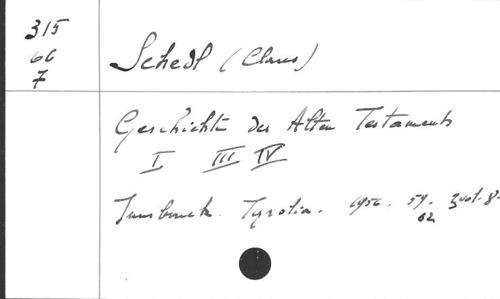 315
66
7
Schedl (Claus)
Geschichte des Alten Testaments
I III IV
Innsbruck. Tyrolia. 1956. 59. 3 vol. 8-
62